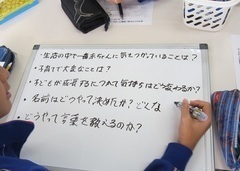 ・生活の中で一番赤ちゃんに気をつけていることは？
・子育てで大変なことは？
・子どもが成長するにつれて気持ちはどう変わるか？
・名前はどうやって決めたか？どんな
どうやって言葉を教えるのか？